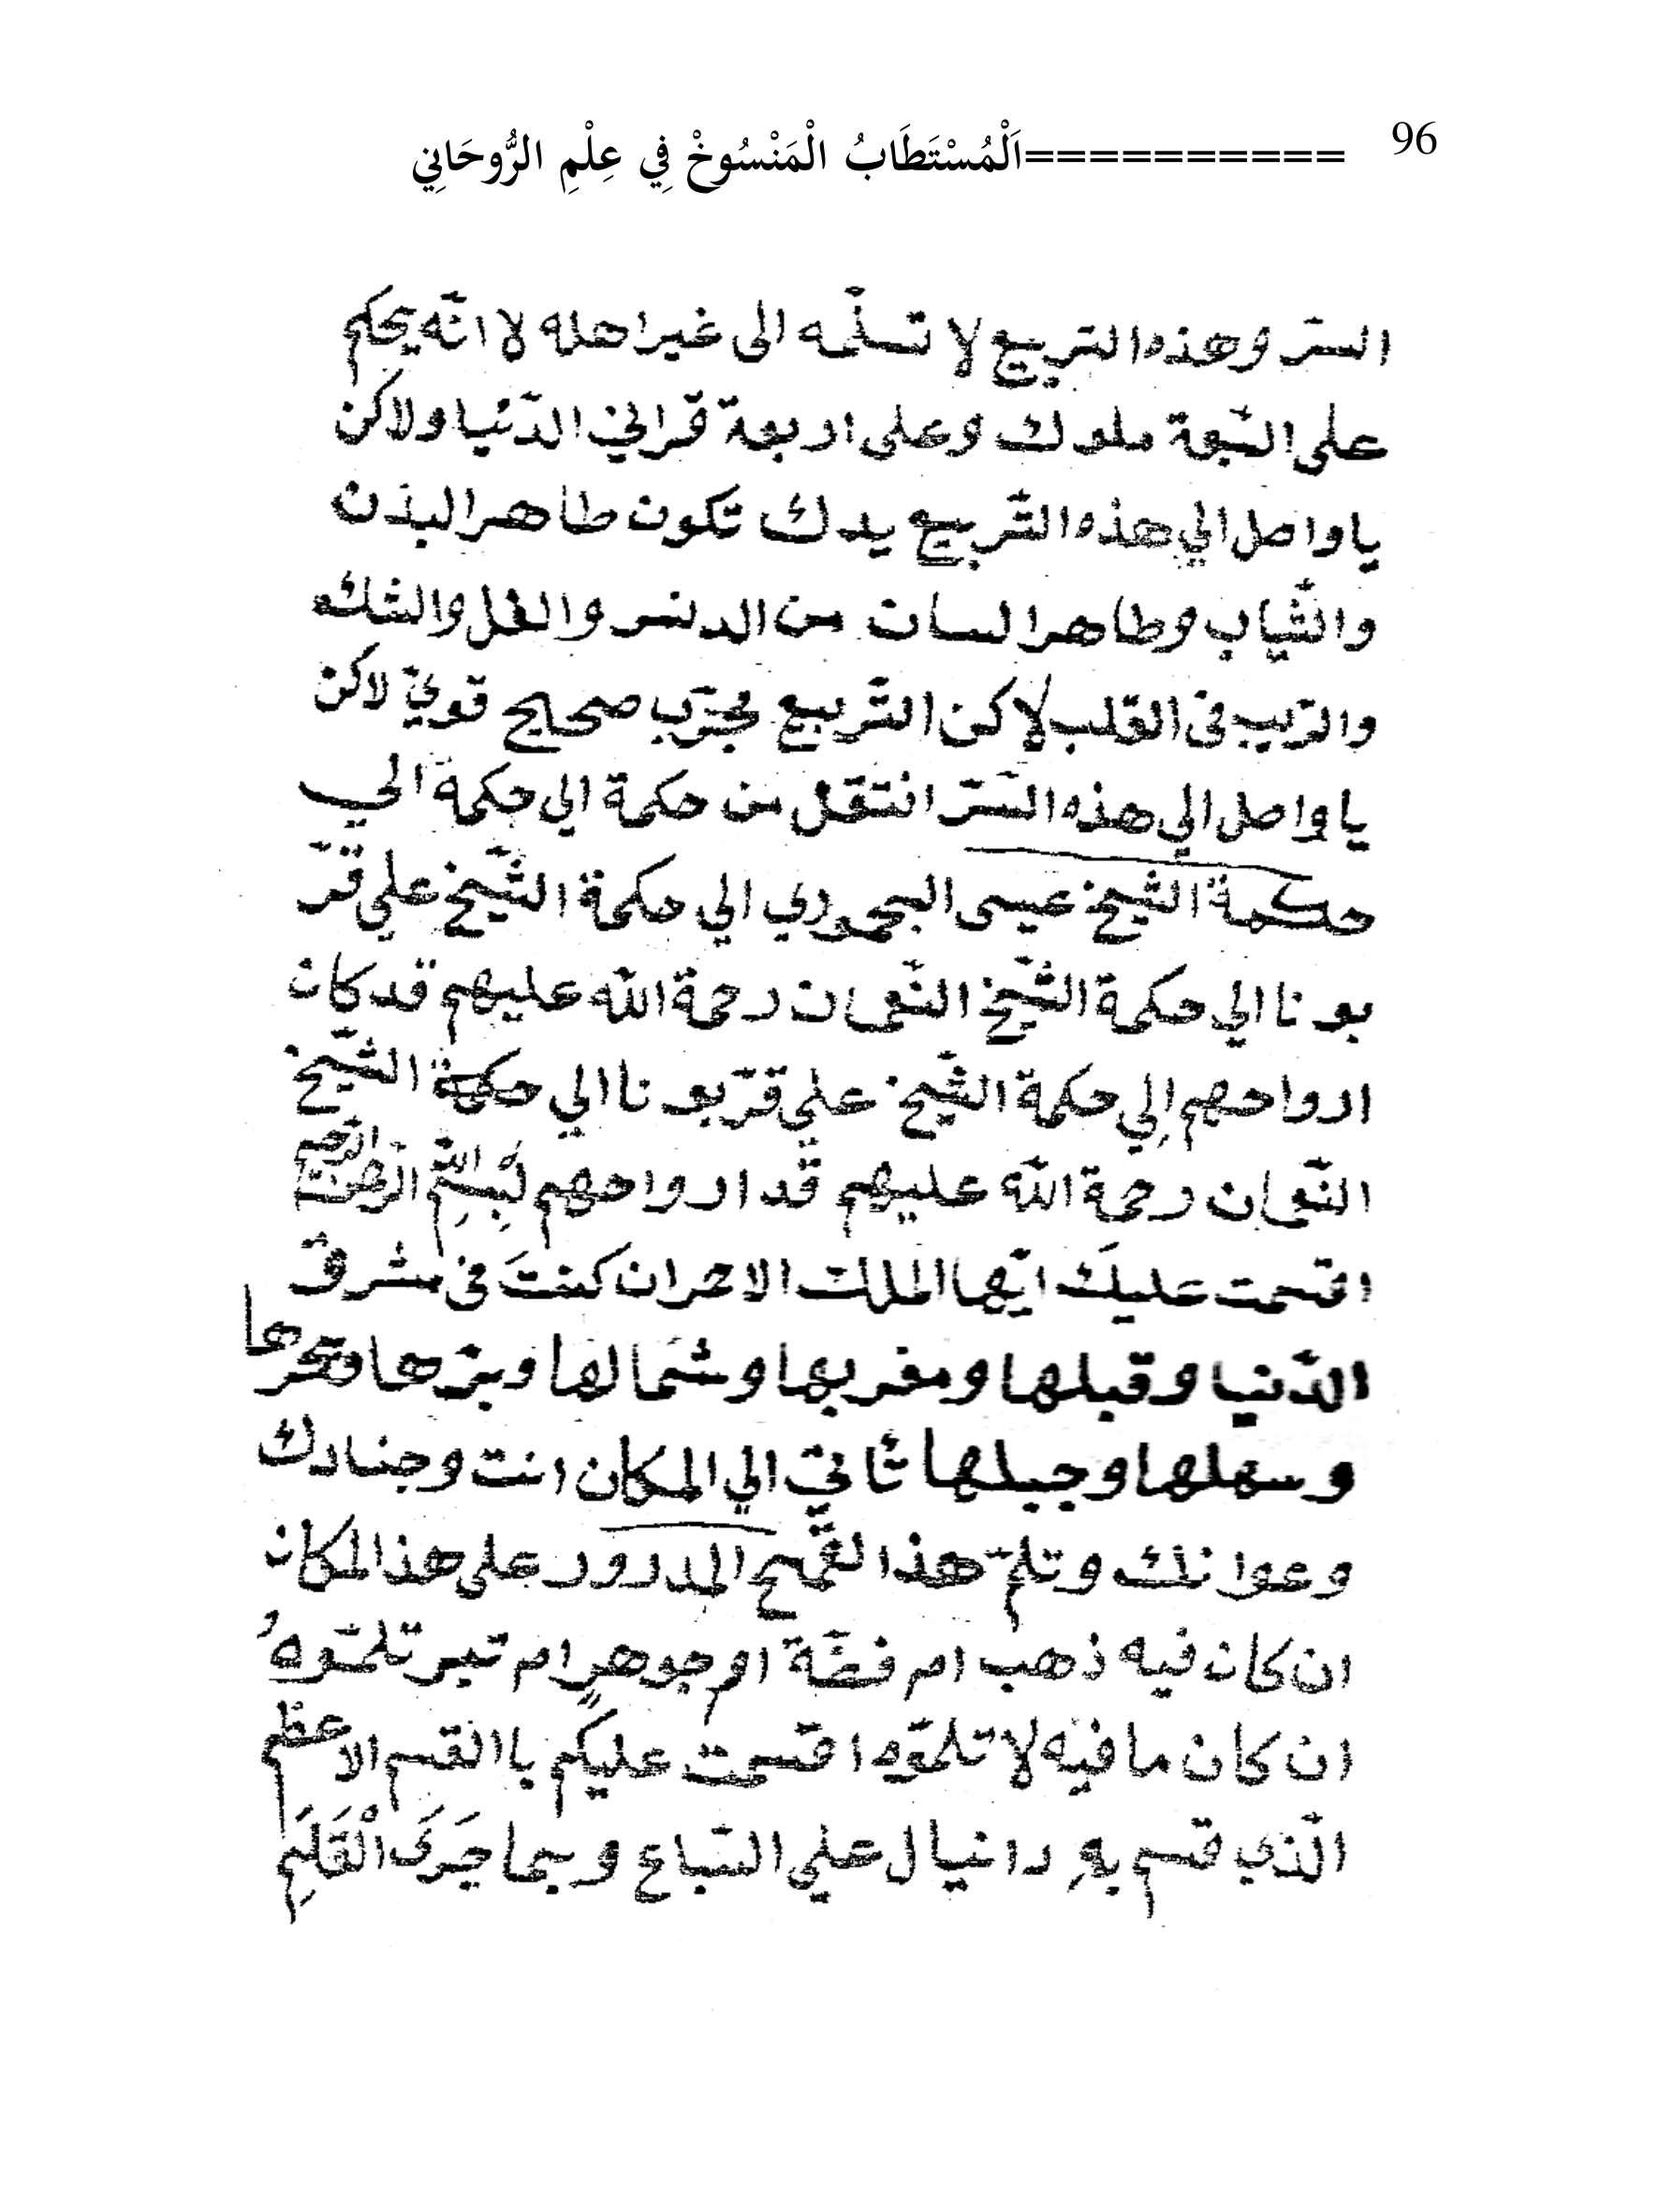 96 ==========اَلْمُسْتَطَابُ الْمَنْسُوخْ فِي عِلْمِ الرُّوحَانِي
السّر وهذه التربيع لا تسلّمه الى غير اهله لا انّه يحكم
على السّبعة ملوك وعلى اربعة قراني الدّنيا ولاكن
يا واصل الي هذه التّربيع يدك تكون طاهر البذن
والثّياب وطاهر السان من الدنس والغل والشك
والرّيب فى القلب لاكن التّربيع مجرّب صحيح قويّ لاكن
يا واصل الي هذه السّرّ انتقل من حكمة الي حكمة الي
حكمة الشّيخ عيسى البجمودي الي حكمة الشّيخ علي قرّ
بونا الي حكمة الشّيخ النّعمان رحمة الله عليهم قد كان
ارواحهم إلي حكمة الشّيخ علي قرّبونا الي حكمة الشّيخ
النّعمان رحمة الله عليهم قد ارواحهم بِسْمِ الله الرّحمن الرّحيم
اقسمت عليك ايّها الملك الاحر ان كنتَ فى مشرق
الدّنيا وقبلها ومغربها وشمالها وبرّها وبحرها
وسهلها وجبلها تأتيّ الي المكان انت وجنادك
وعوانك وتلمّ هذا القّمح المدرور على هذ المكان
ان كان فيه ذهب ام فضّة ام جوهرٍ ام تبر تلمّوهُ
ان كان ما فيه لا تلمّوه اقسمت عليكم باالقسم الاعظم
الّذي قسم بهِ دانيال علي السّباع وبما جَرَى الْقَلَمِ